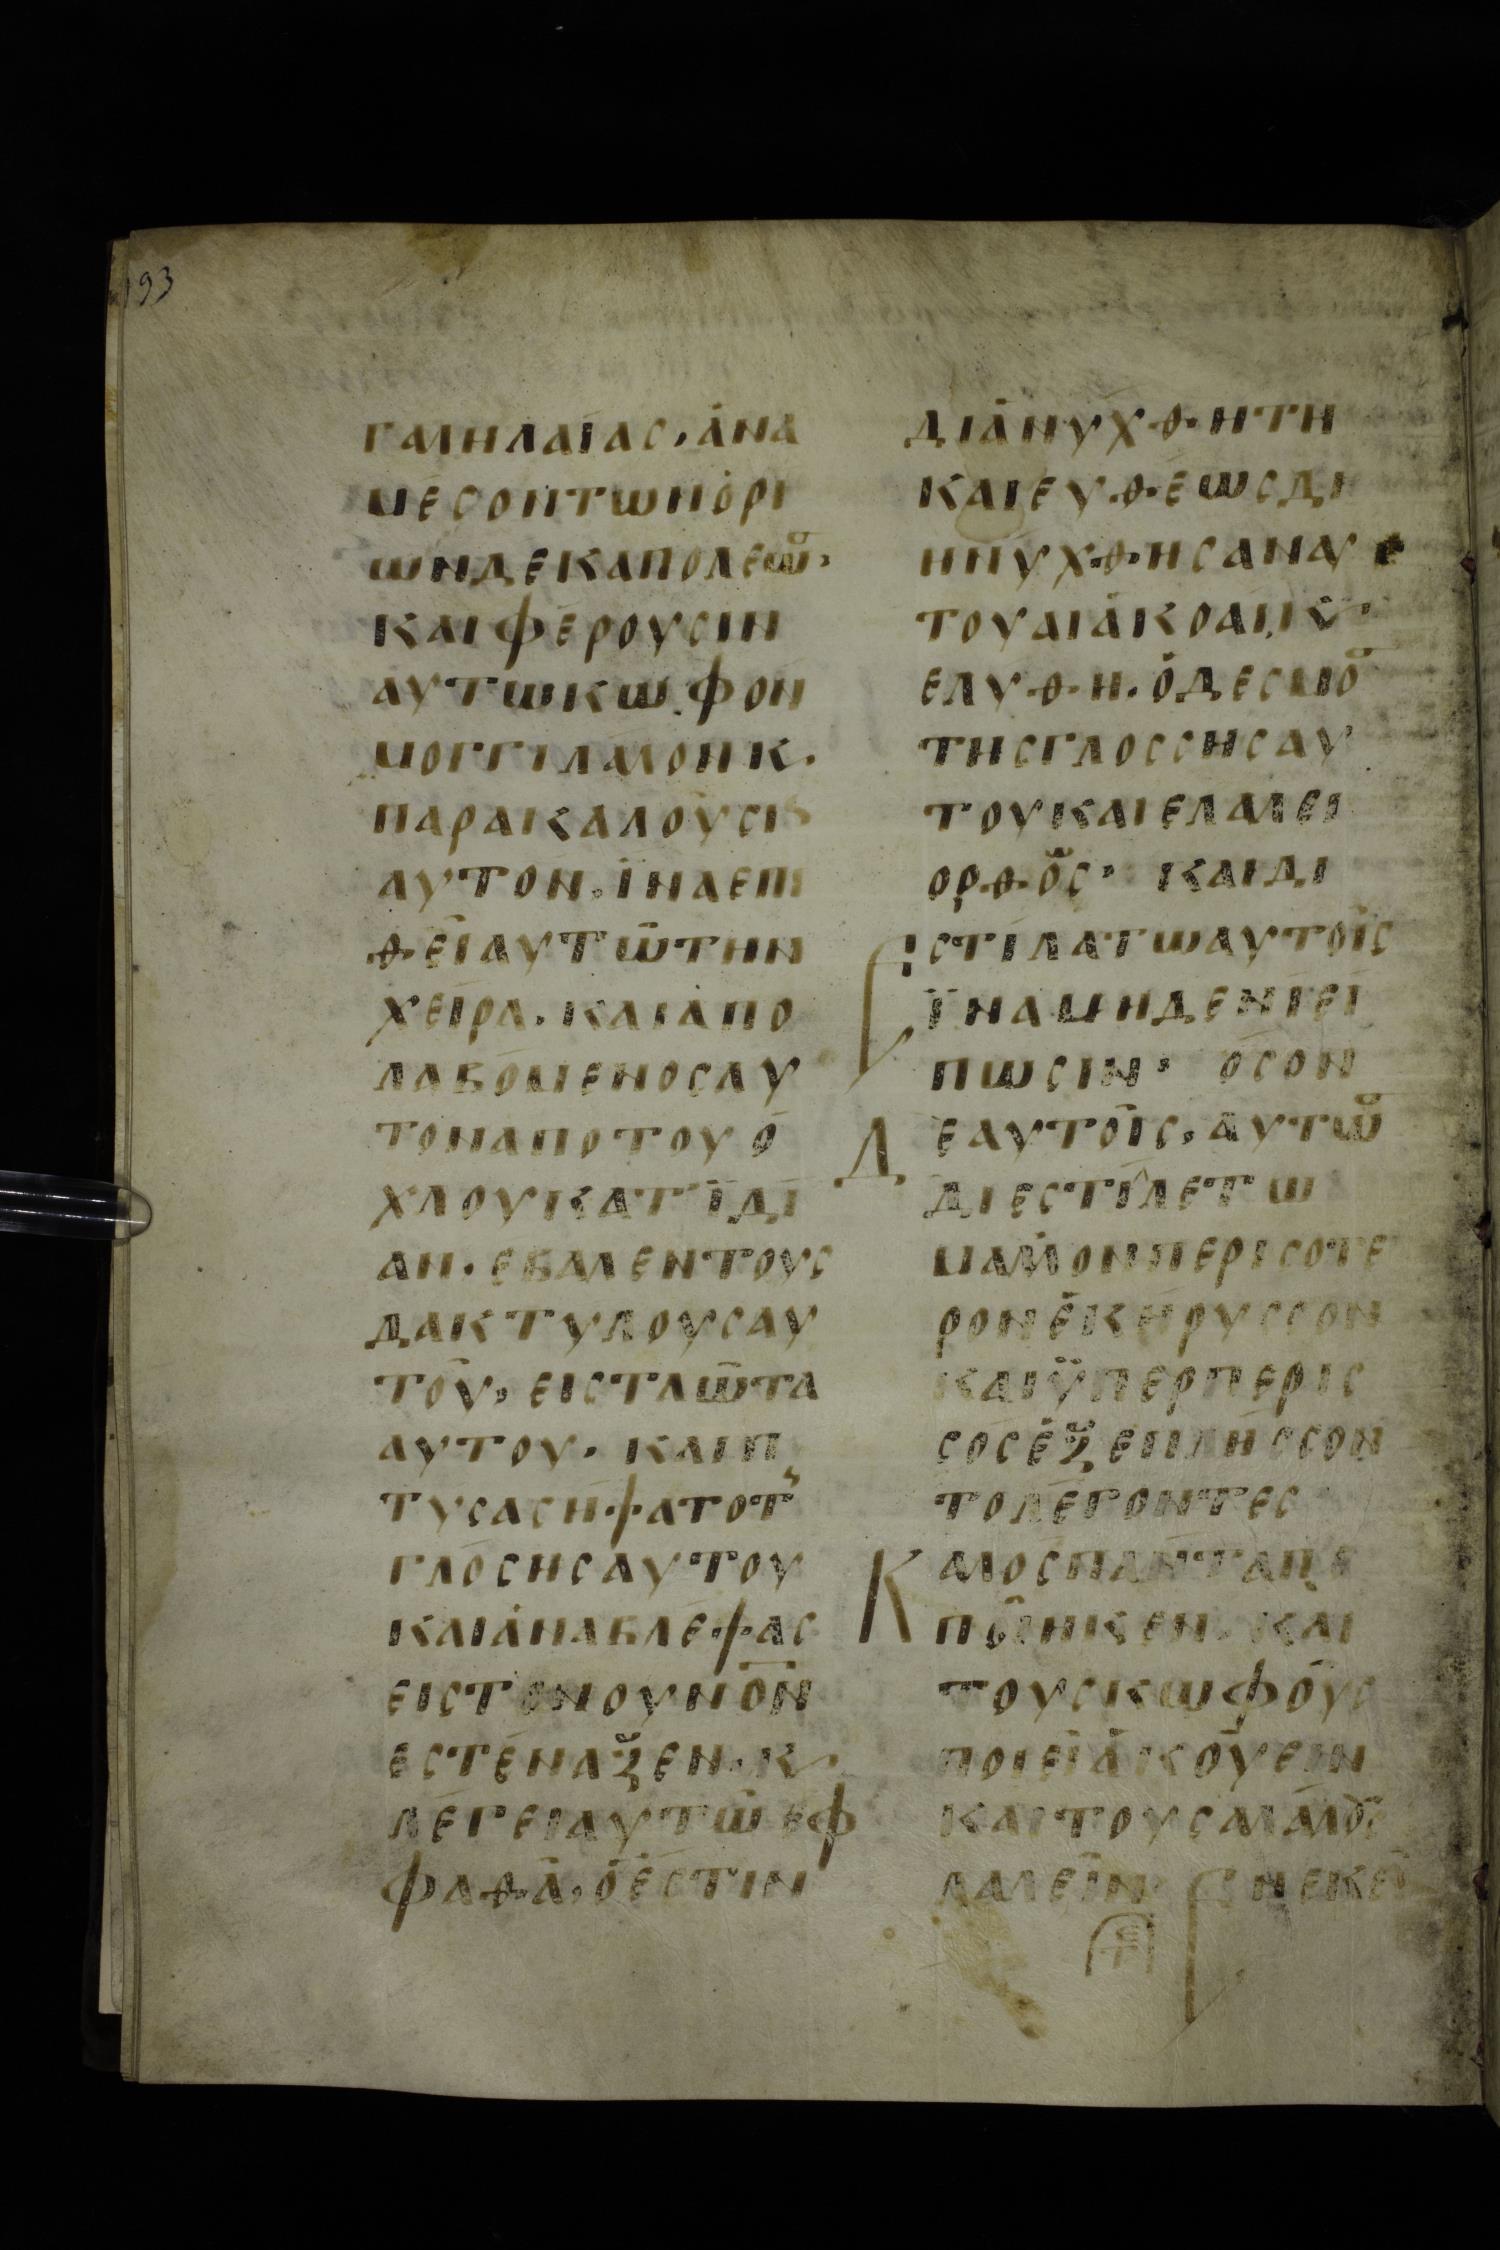 ΓΑΛΗΛΑΪΑϹ· ἈΝΑ
ΜΕϹΟΝΤΩΝὉΡΙ
ΩΝΔΕΚΑΠΟΛΕΩ̅·
ΚΑΙΦΕΡΟΥϹΙΝ
ΑΥΤΩΚΩΦΟΝ
ΜΟΓΓΙΛΑΛΟΝΚ·
ΠΑΡΑΚΑΛΟΥϹΙ
ΑΥΤΟΝ·ΪΝΑΕΠΙ
ΘΕΙΑΥΤΩΤΗΝ
ΧΕΙΡΑ·ΚΑΙΑΠΟ
ΛΑΒΟΜΕΝΟϹΑΥ
ΤΟΝΑΠΟΤΟΥΟ
ΧΛΟΥΚΑΤΪΔΙ
ΑΝ·ΕΒΑΛΕΝΤΟΥϹ
ΔΑΚΤΥΛΟΥϹΑΥ
ΤΟΥ·ΕΙϹΤΑΩΤΑ
ΑΥΤΟΥ·ΚΑΙΠ
ΤΥϹΑϹΗΨΑΤΟΤ
ΓΛΟϹΗϹΑΥΤΟΥ
ΚΑΙΑΝΑΒΛΕΨΑϹ
ΕΙϹΤΟΝΟΥΝΟ̅Ν
ΕϹΤΕΝΑΞΕΝ·Κ·
ΛΕΓΕΙΑΥΤΩΕΦ
ΦΑΘΑ·ΟΕϹΤΙΝ
ΔΙΑΝΥΧΘΗΤΗ
ΚΑΙΕΥΘΕΩϹΔΙ
ΗΝΥΧΘΗϹΑΝΑΥ
ΤΟΥΑΙΑΚΟΑΙ,Κ·
ΕΛΥΘΗ·ΟΔΕϹΜΟ̅
ΤΗϹΓΛΟϹϹΗϹΑΥ
ΤΟΥΚΑΙΕΛΑΛΕΙ
ΟΡΘΟϹ· ΚΑΙΔΙ
ΕϹΤΙΛΑΤΩΑΥΤΟΙϹ
ΪΝΑΜΗΔΕΝΙΕΙ
ΠΩϹΙΝ· ΟϹΟΝ
ΔΕΑΥΤΟΙϹ·ΑΥΤΩ̅
ΔΙΕϹΤΙΛΕΤΩ
ΜΑΛΛΟΝΠΕΡΙϹΟΤΕ
ΡΟΝΕΚΗΡΥϹϹΟΝ
ΚΑΙΫΠΕΡΠΕΡΙϹ
ϹΟϹΕΞΕΠΛΗϹϹΟΝ
ΤΟΛΕΓΟΝΤΕϹ
ΚΑΛΟϹΠΑΝΤΑΠΕ
ΠΟΙΗΚΕΝ·ΚΑΙ
ΤΟΥϹΚΩΦΟΥϹ
ΠΟΙΕΙΑΚΟΥΕΙΝ
ΚΑΙΤΟΥϹΑΛΑΛΟΥϹ
ΛΑΛΕΙΝ· ΕΝΕΚΕΙ
193